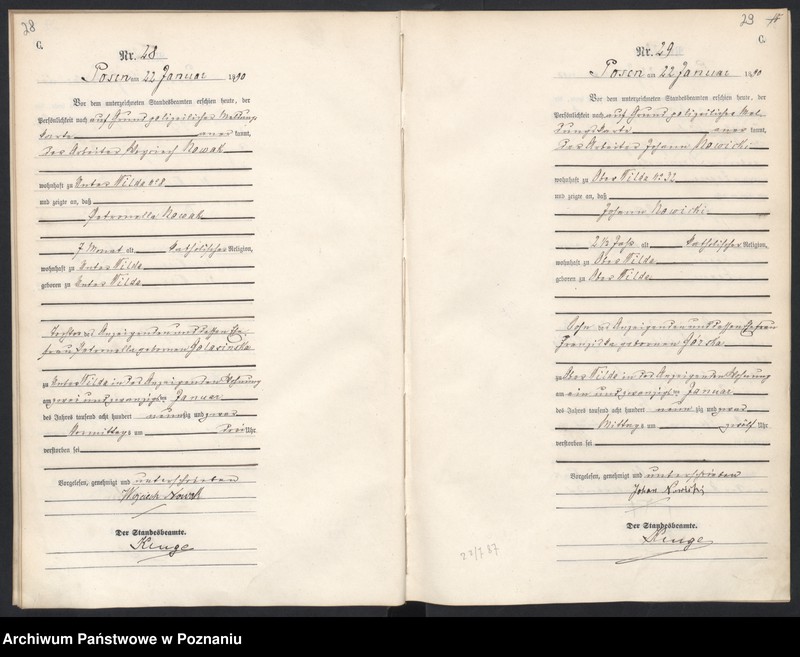 28
C.
Nr. 28
Posen am 22 Januar 1890
Vor dem unterzeichneten Standesbeamten erschien heute, der
Persönlichkeit nach auf Grund polizeilicher Meldungs
karte aner kannt,
der Arbeiter Woyciech Nowak
wohnhaft zu Unter Wilda
und zeigte an, daß
Petronella Nowak
7 Monat alt katholischer Religion,
wohnhaft zu Unter Wilda
geboren zu Unter Wilda
Tochter des Anzeigenden und dessen Ehe
frau Petronella geborenen
zu Unter Wilda in des Anzeigenden Wohnung
am zwei und zwanzigsten Januar
des Jahres tausend acht hundert neunzig und zwar
Vormittags um drei Uhr
verstorben sei
Vorgelesen, genehmigt und unterschrieben
Wojciech Nowak
Der Standesbeamte.
29
C.
Nr. 29
Posen am 22 Januar 1890
Vor dem unterzeichneten Standesbeamten erschien heute, der
Persönlichkeit nach auf Grund polizeilicher Mel
dungskarte aner kannt,
der Arbeiter Johann Nowicki
wohnhaft zu Ober Wilda No 32
und zeigte an, daß
Johann Nowicki
2 1/2 Jahr alt katholischer Religion,
wohnhaft zu Ober Wilda
geboren zu Ober Wilda
Sohn des Anzeigenden und dessen Ehefrau
Franziska geborenen
zu Ober Wilda in des Anzeigenden Wohnung
am ein und zwanzigsten Januar
des Jahres tausend acht hundert neun zig und zwar
Mittags um zwölf Uhr
verstorben sei
Vorgelesen, genehmigt und unterschrieben
Johan Nowicki
Der Standesbeamte.
Archiwum Państwowe w Poznaniu